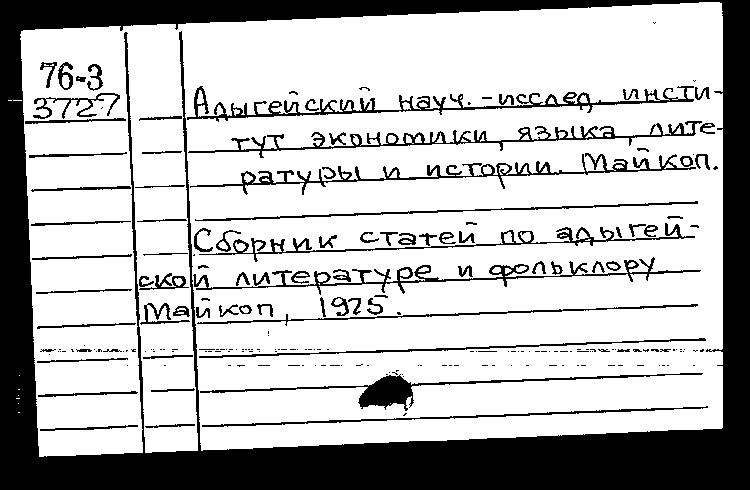 76-3
3727
Адыгейский науч.-исслед. инсти-
тут экономики, языка, лите-
ратуры и истории. Майкоп.
Сборник статей по адыгей-
ской литературе и фольклору
Майкоп, 1925.